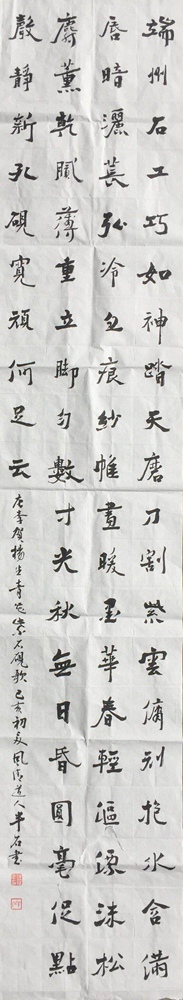 端州石工巧如神踏天磨刀割紫雲傭刓抱水含滿
唇暗灑萇弘冷血痕紗帷晝暖墨華春輕漚漂沫松
麝薰乾膩薄重立脚勻數寸光秋無日昏圓毫促點
聲靜新孔硯寬頑何足云
唐李賀楊生青花紫石硯歌己亥初夏風清道人半石書